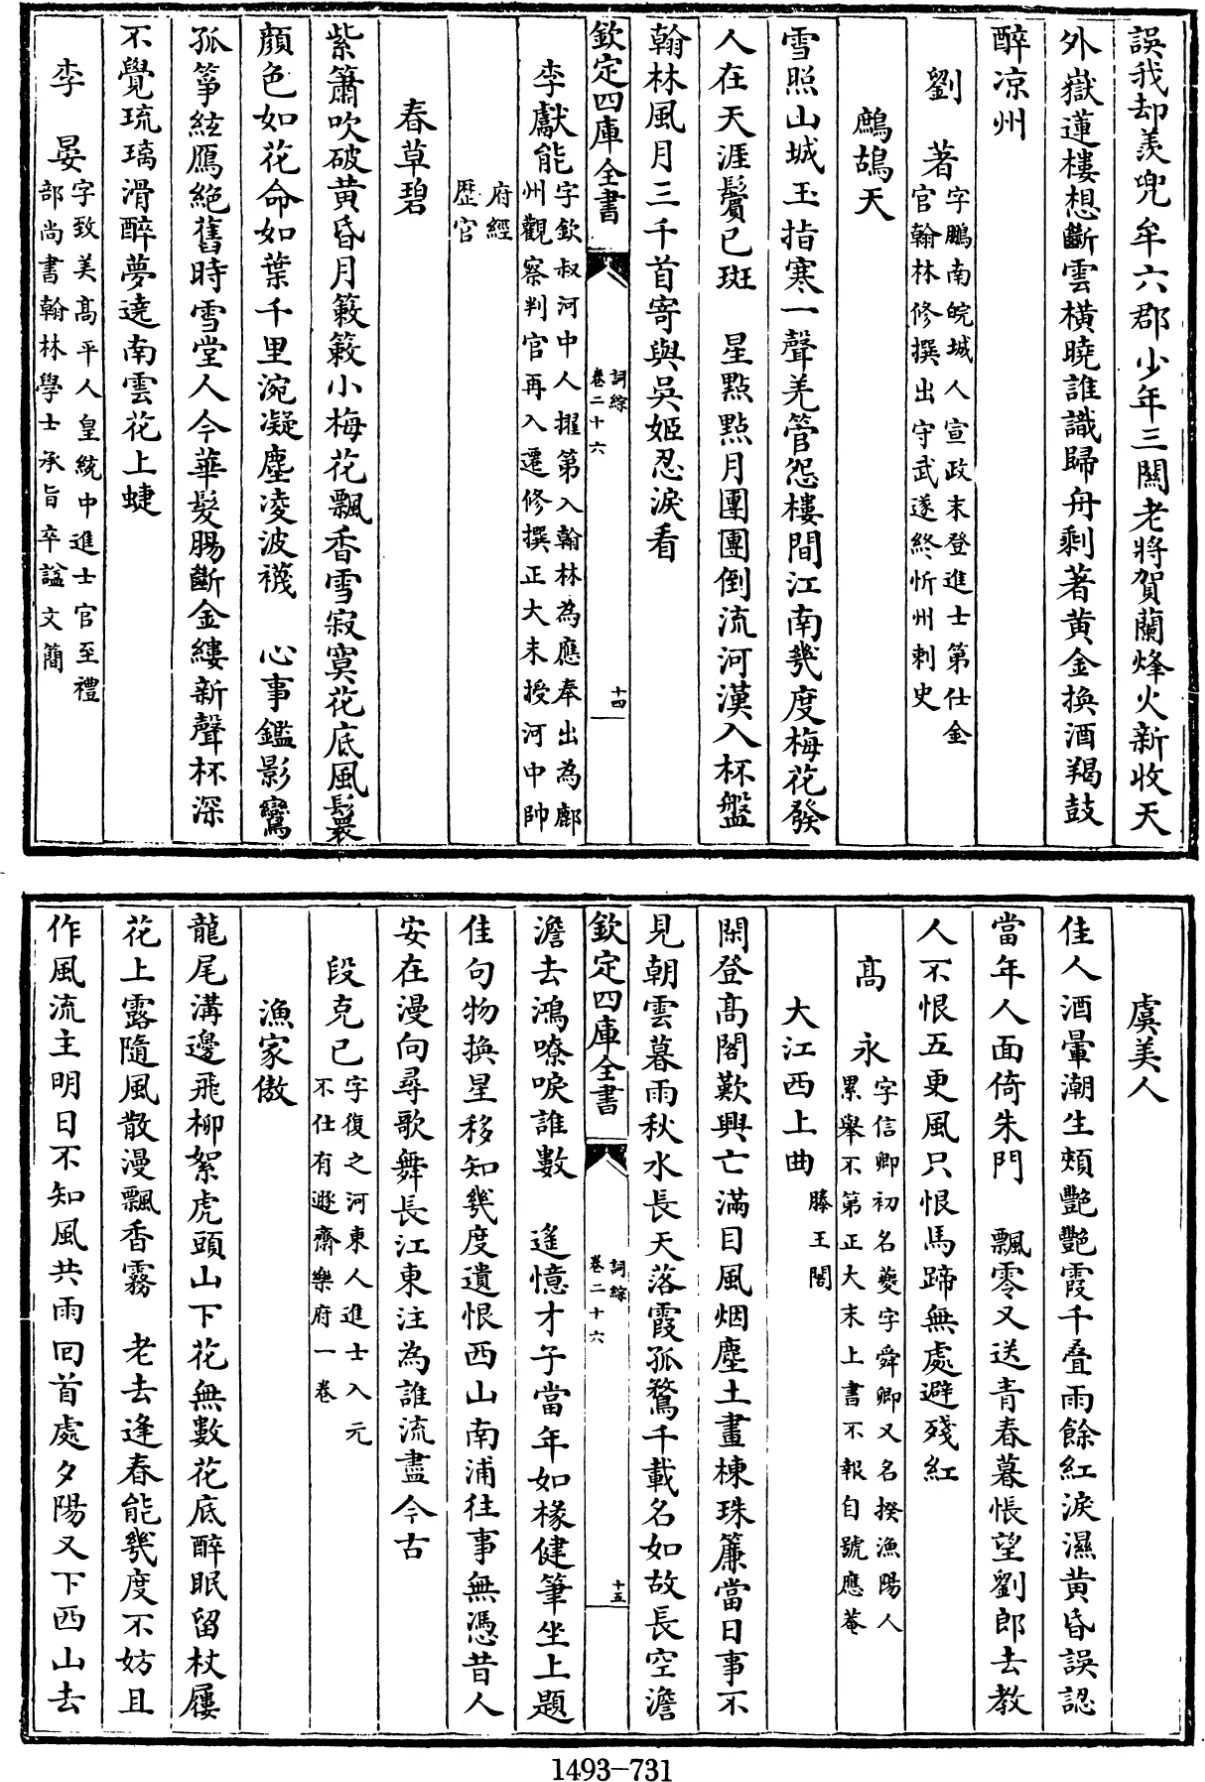 誤我却羨兜牟六郡少年三關老將賀蘭烽火新收天
外嶽蓮樓想斷雲橫曉誰識歸舟剩著黄金換酒羯鼓
醉凉州
劉　著字鵬南皖城人宣政末登進士第仕金
官翰林修撰出守武遂終忻州刺史
鷓鴣天
雪照山城玉指寒一聲羌管怨樓間江南幾度梅花發
人在天涯鬢已斑　星點點月團團倒流河漢入杯盤
翰林風月三千首寄與吳姬忍淚看
欽定四庫全書
詞綜
卷二十六
十四
李獻能字欽叔河中人擢第入翰林為應奉出為鄜
州觀察判官再入遷修撰正大末授河中帥
府經
歴官
春草碧
紫簫吹破黄昏月簌簌小梅花飄香雪寂寞花底風鬟
顔色如花命如葉千里涴凝塵凌波襪　心事鑑影鸞
孤箏絃鴈絕舊時雪堂人今華髮腸斷金縷新聲杯深
不覺琉璃滑醉夢遶南雲花上蜨
李　晏字致美髙平人皇統中進士官至禮
部尚書翰林學士承旨卒諡文簡
虞美人
佳人酒暈潮生頰艷艷霞千叠雨餘紅淚濕黄昏誤認
當年人面倚朱門　飄零又送青春暮悵望劉郎去教
人不恨五更風只恨馬蹄無處避殘紅
髙　永字信卿初名夔字舜卿又名揆漁陽人
累舉不第正大末上書不報自號應菴
大江西上曲滕王閣
閑登髙閣歎興亡滿目風烟塵土畫棟珠簾當日事不
見朝雲暮雨秋水長天落霞孤鶩千載名如故長空澹
欽定四庫全書
詞綜
卷二十六
十五
澹去鴻嘹唳誰數　遥憶才子當年如椽健筆坐上題
佳句物換星移知幾度遺恨西山南浦往事無憑昔人
安在漫向尋歌舞長江東注為誰流盡今古
段克己字復之河東人進士入元
不仕有遯齋樂府一卷
漁家傲
龍尾溝邊飛柳絮虎頭山下花無數花底醉眠留杖屨
花上露隨風散漫飄香霧　老去逢春能幾度不妨且
作風流主明日不知風共雨回首處夕陽又下西山去
1493-731